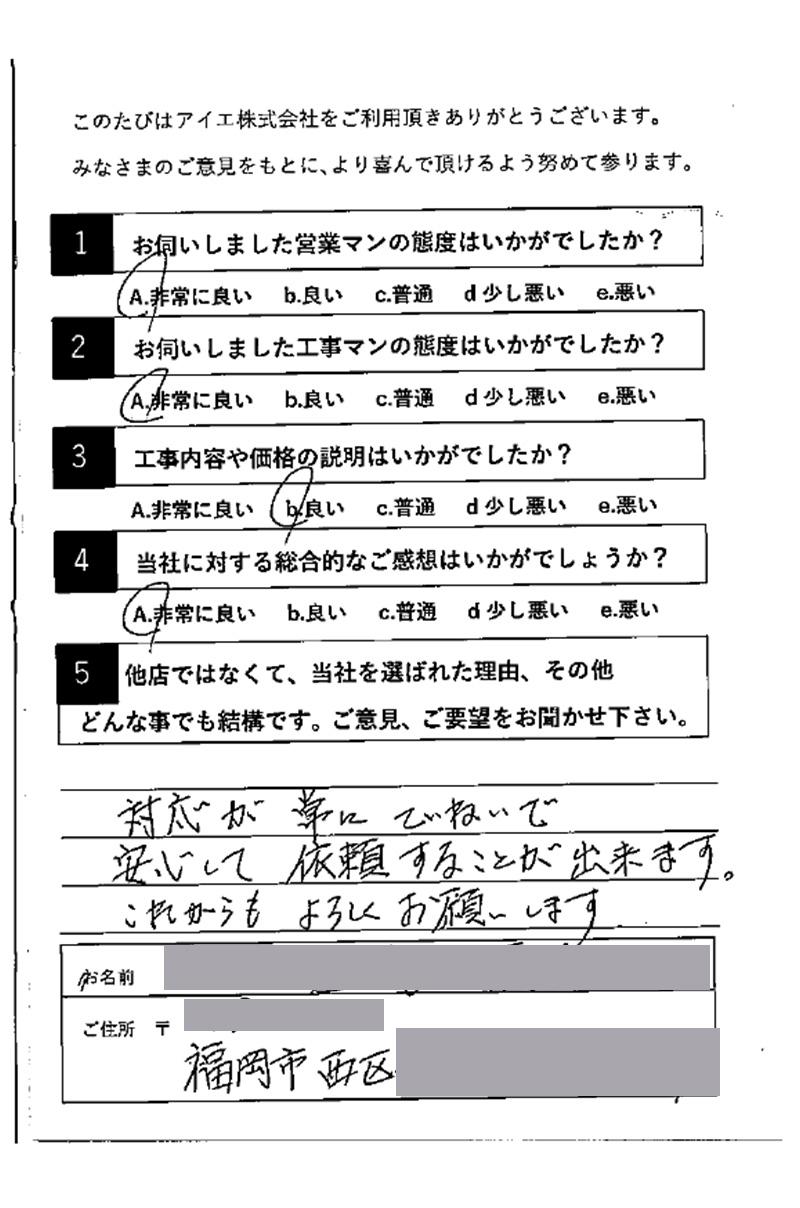 このたびはアイエ株式会社をご利用頂きありがとうございます。
みなさまのご意見をもとに、より喜んで頂けるよう努めて参ります。
1 お伺いしました営業マンの態度はいかがでしたか？
A.非常に良い b.良い c.普通 d 少し悪い e.悪い
2 お伺いしました工事マンの態度はいかがでしたか？
A.非常に良い b.良い c.普通 d 少し悪い e.悪い
3 工事内容や価格の説明はいかがでしたか？
A.非常に良い b.良い c.普通 d 少し悪い e.悪い
4 当社に対する総合的なご感想はいかがでしょうか？
A.非常に良い b.良い c.普通 d 少し悪い e.悪い
5 他店ではなくて、当社を選ばれた理由、その他
どんな事でも結構です。ご意見、ご要望をお聞かせ下さい。
対応が常にていねいで
安心して依頼することが出来ます。
これからもよろしくお願いします
お名前
ご住所 〒
福岡市西区